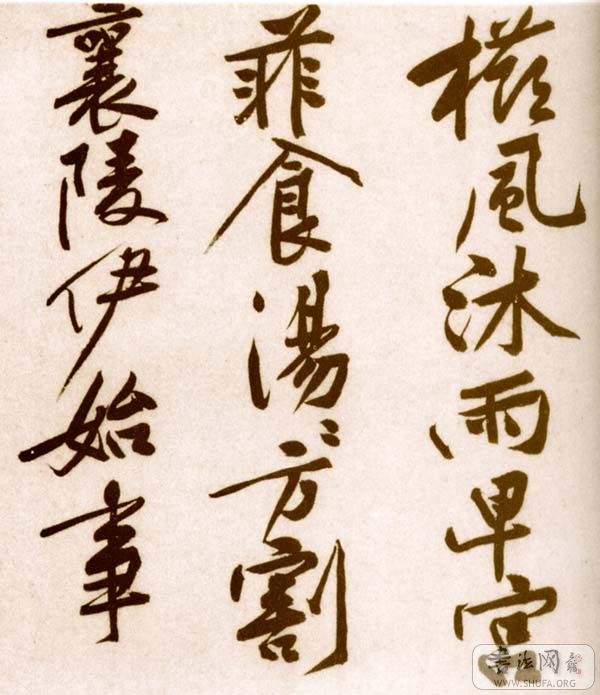 櫛風沐雨卑宮
菲食湯〻方割
襄陵伊始事
书法网
WWW.SHUFA.ORG